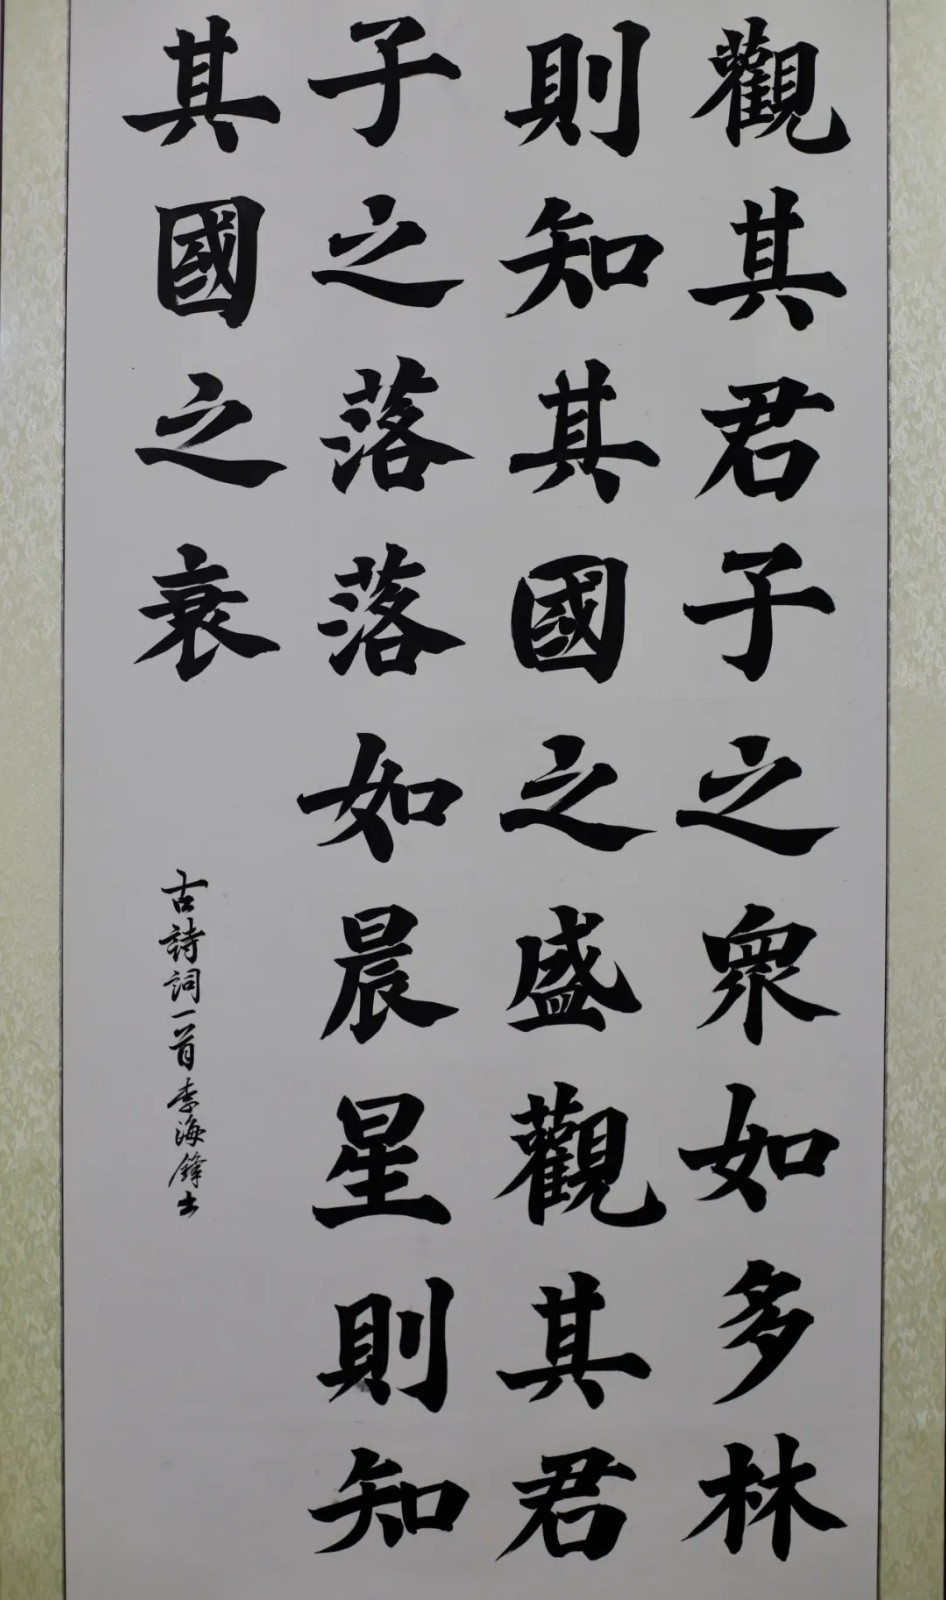 觀其君子之眾如多林
則知其國之盛觀其君
子之落落如晨星則知
其國之衰
古詩詞一首李海鋒书